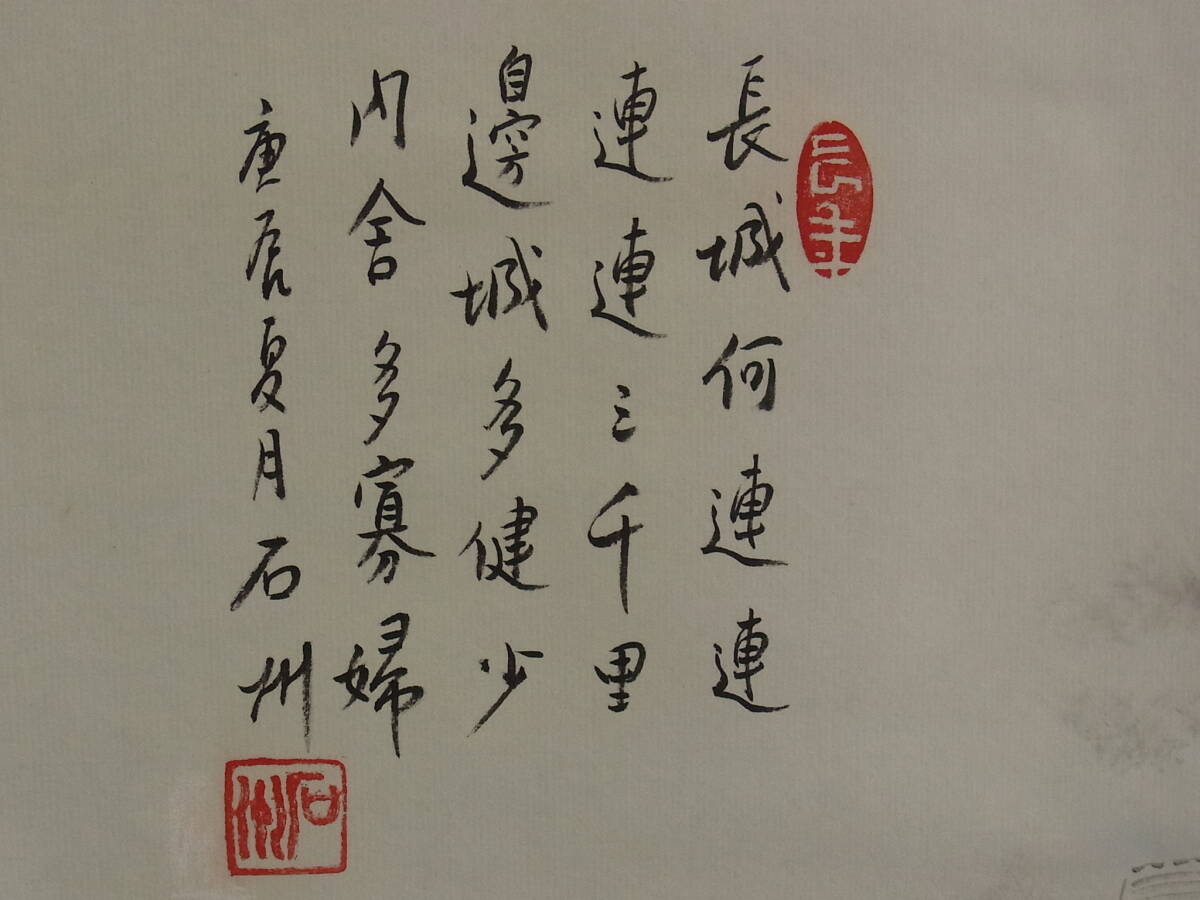 長城何連連
連連三千里
邊城多健少
內舍多寡婦
庚辰夏月石州
石州